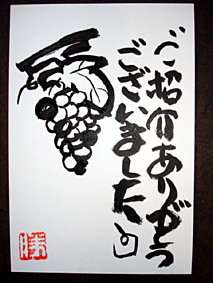 ご紹介ありがとう
ございました